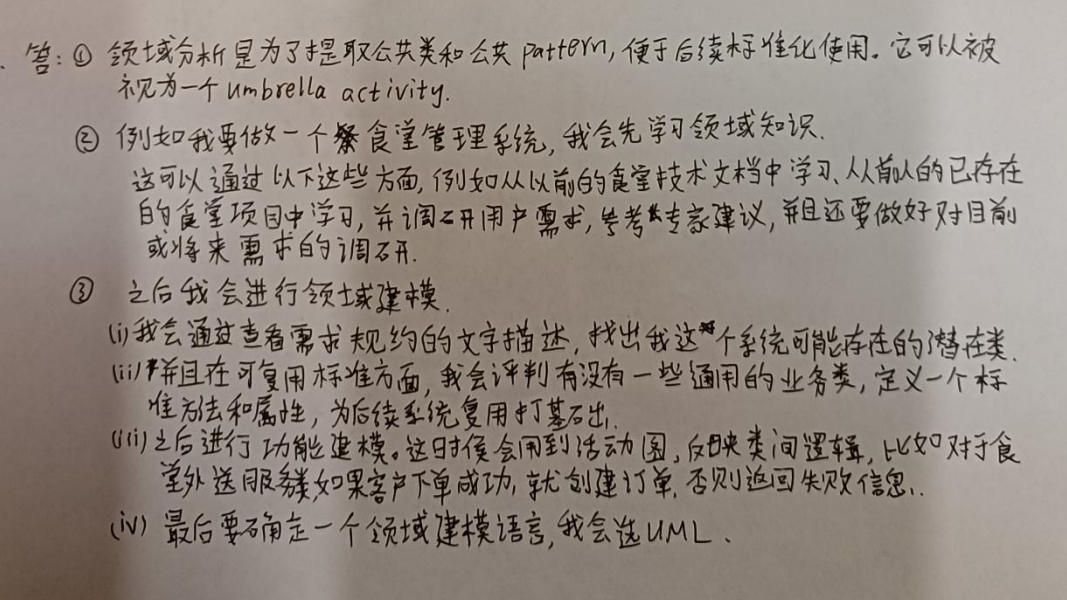 答:① 领域分析是为了提取公共类和公共 pattern,便于后续标准化使用。它可以被
视为一个 umbrella activity.
② 例如我要做一个食堂管理系统,我会先学习领域知识.
这可以通过以下这些方面,例如从以前的食堂技术文档中学习、从前人的已存在
的食堂项目中学习,并调研用户需求,参考专家建议,并且还要做好对目前
或将来需求的调研.
③ 之后我会进行领域建模.
(i)我会通过查看需求规约的文字描述,找出我这个系统可能存在的潜在类.
(ii)并且在可复用标准方面,我会评判有没有一些通用的业务类,定义一个标
准方法和属性,为后续系统复用打基础.
(iii)之后进行功能建模。这时候会用到活动图,反映类间逻辑,比如对于食
堂外送服务类如果客户下单成功,就创建订单,否则返回失败信息.
(iv) 最后要确定一个领域建模语言,我会选UML.